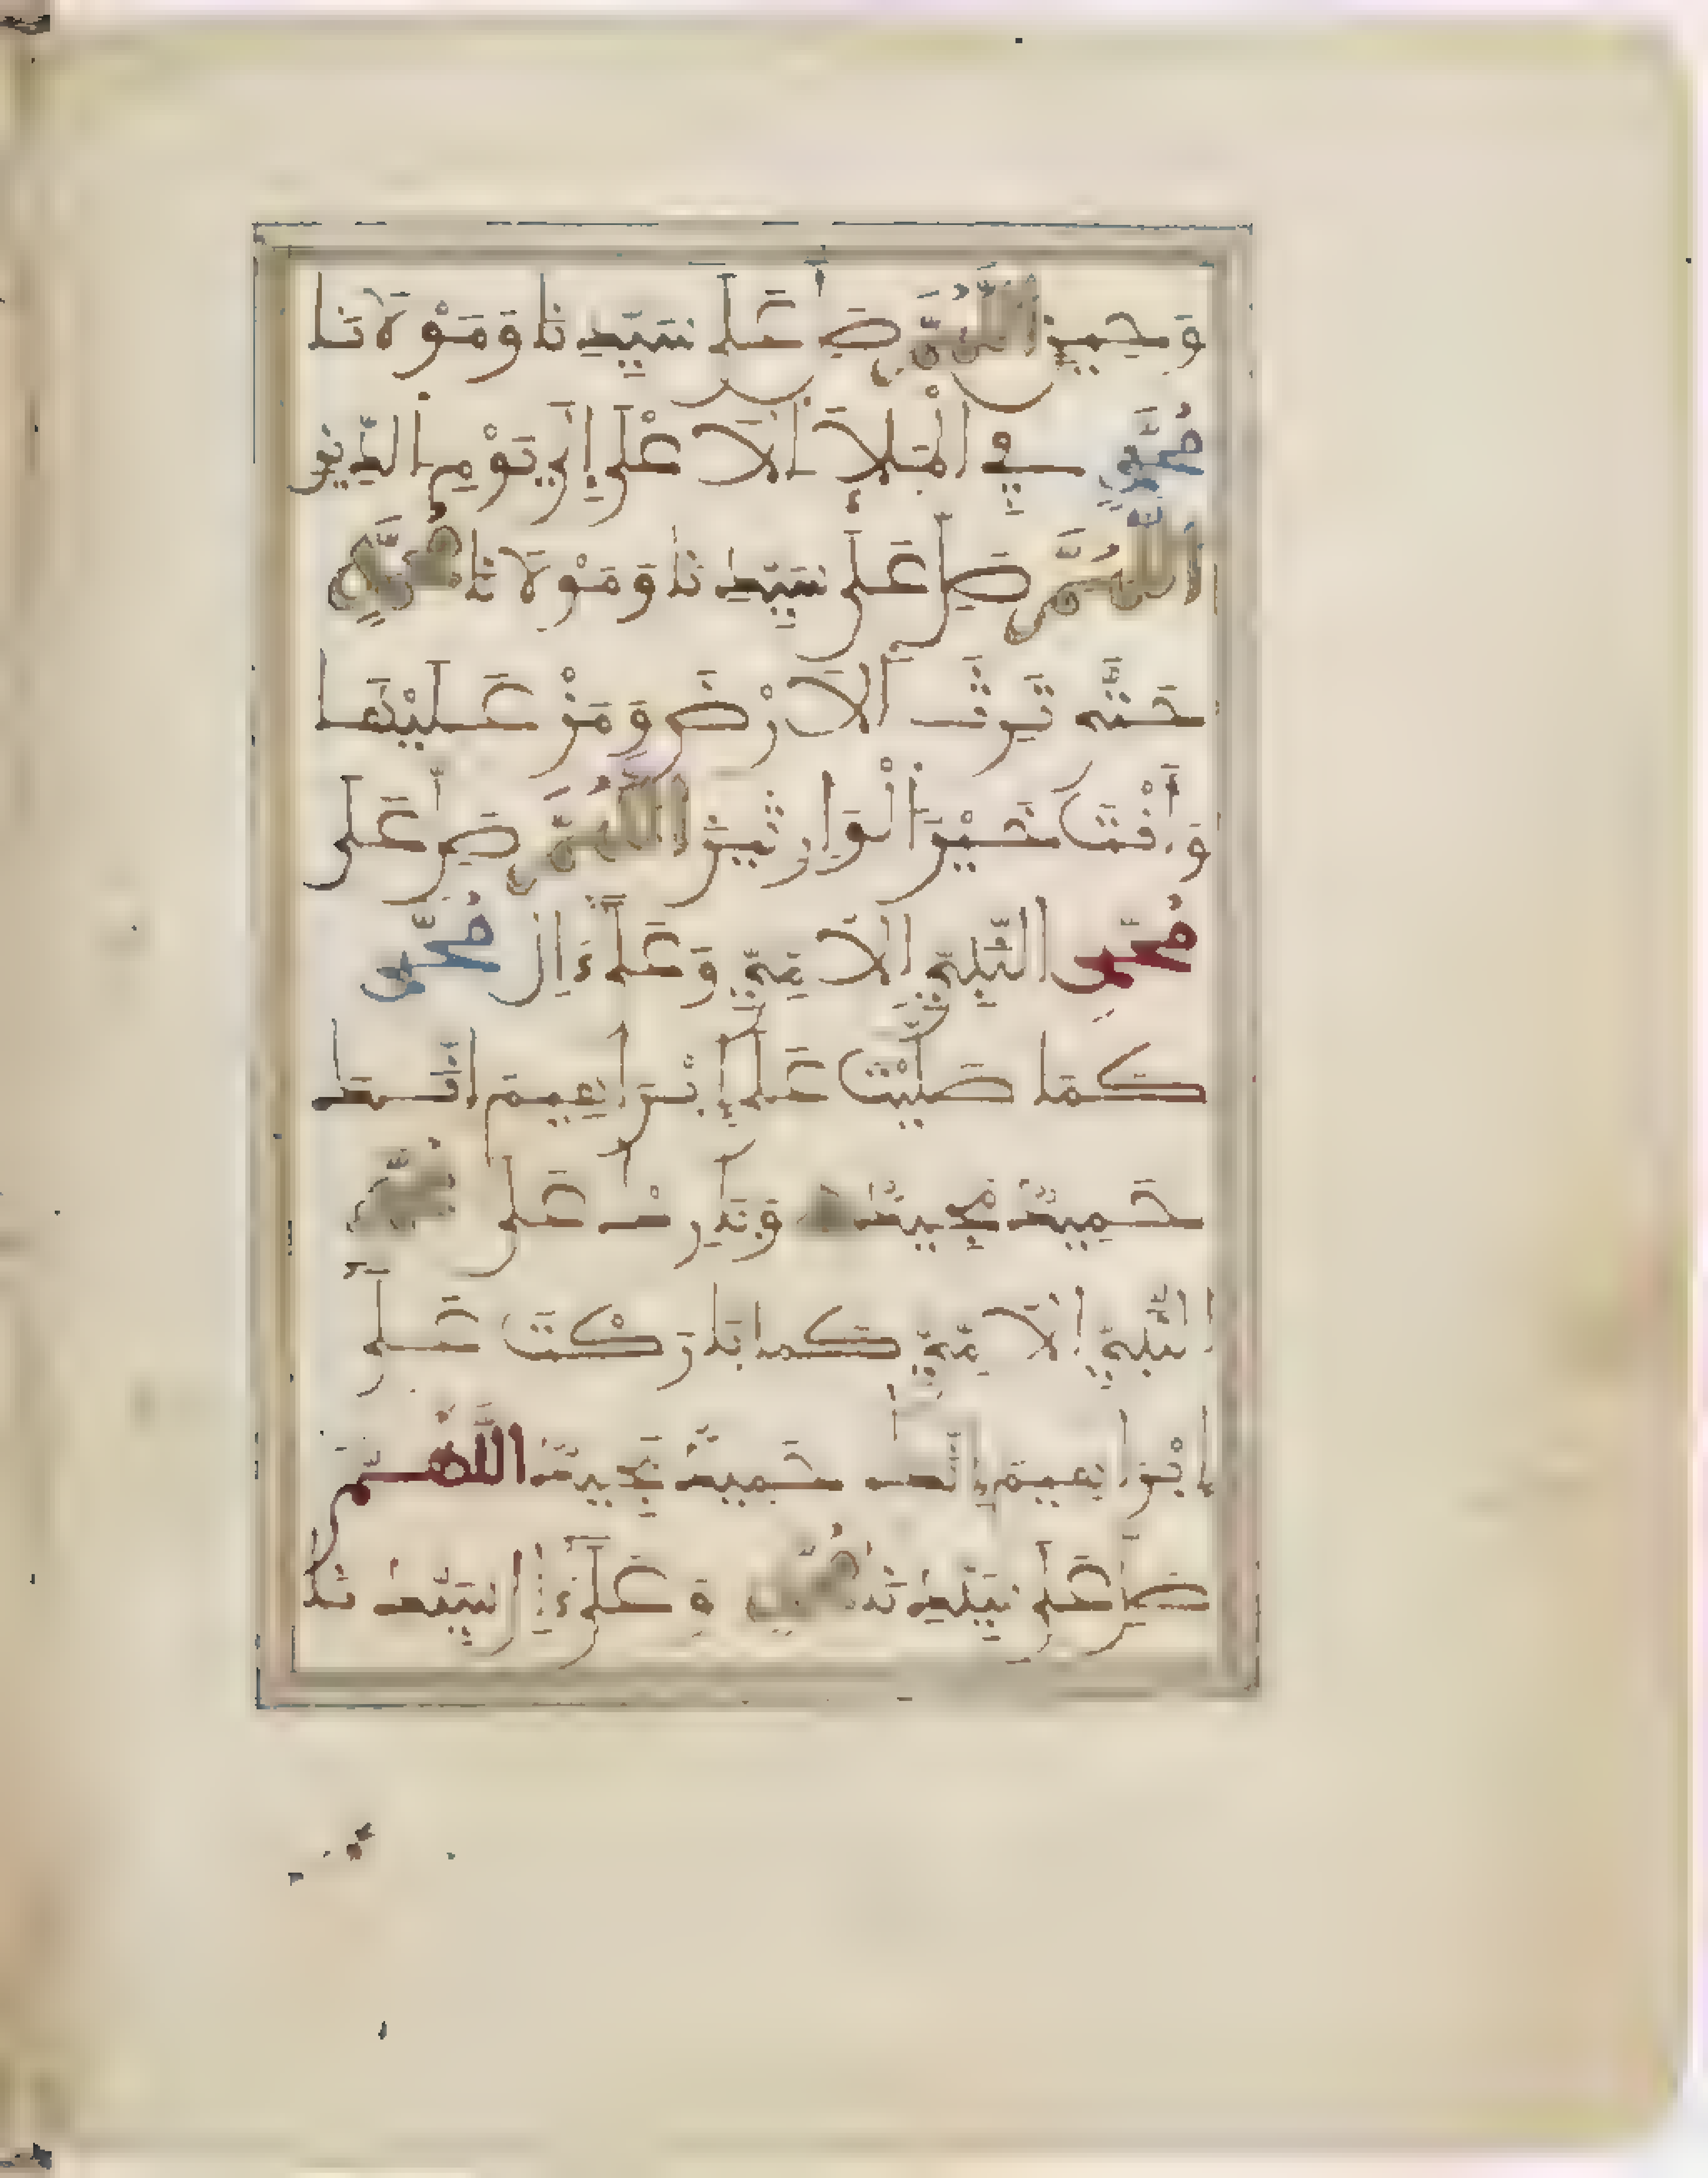 وَحِينٍ اللَّهُمَّ صَلِّ عَلَى سَيِّدِنَا وَمَوْلَانَا
مُحَمَّدٍ فِي الْمَلَإِ الَاعْلَى إِلَى يَوْمِ الدِّينِ
اللَّهُمَّ صَلِّ عَلَى سَيِّدِنَا وَمَوْلَانَا مُحَمَّدٍ
حَتَّى تَرِثَ الَارْضَ وَمَنْ عَلَيْهَا
وَأَنْتَ خَيْرُ الْوَارِثِينَ اللَّهُمَّ صَلِّ عَلَى
مُحَمَّدٍ النَّبِيِّ الُامِّيِّ وَعَلَى ءَالِ مُحَمَّدٍ
كَمَا صَلَّيْتَ عَلَى إِبْرَاهِيمَ إِنَّكَ
حَمِيدٌ مَجِيدٌ وَبَارِكْ عَلَى مُحَمَّدٍ
النَّبِيِّ الُامِّيِّ كَمَا بَارَكْتَ عَلَى
إِبْرَاهِيمَ إِنَّكَ حَمِيدٌ مَجِيدٌ اللَّهُمَّ
صَلِّ عَلَى سَيِّدِنَا مُحَمَّدٍ وَعَلَى ءَالِ سَيِّدِنَا